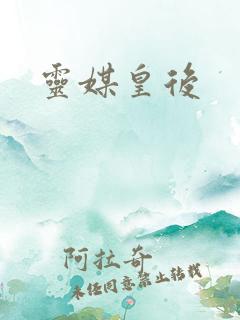 靈媒皇後
阿拉奇
未經同意禁止轉載